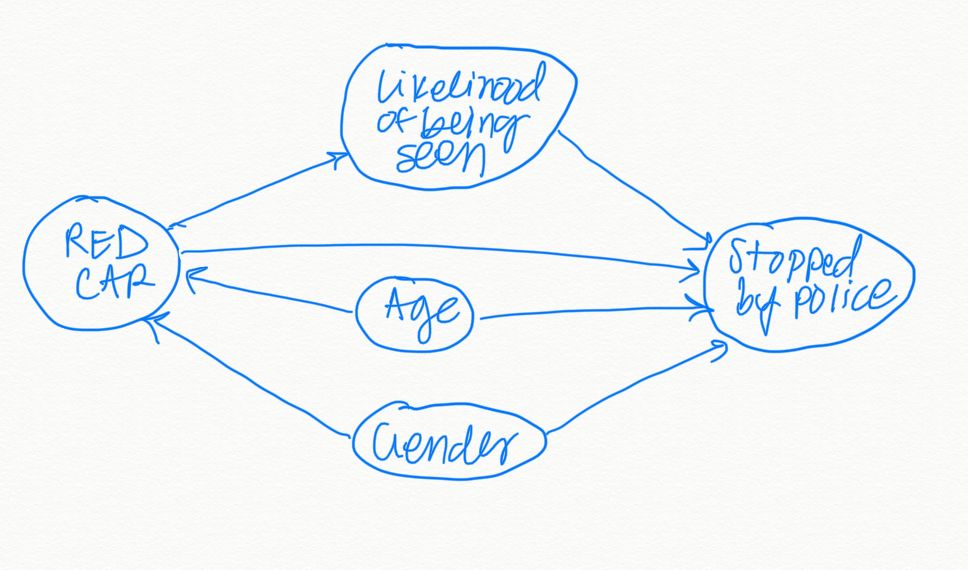 Likelihood
of being
seen
RED
CAR
Stopped
by police
Age
Gender